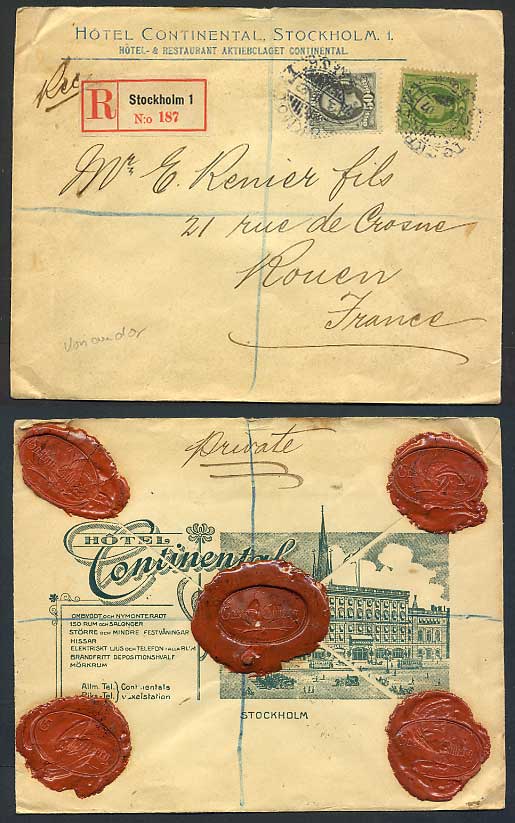 HÔTEL CONTINENTAL, STOCKHOLM. 1.
HÔTEL- & RESTAURANT AKTIEBOLAGET CONTINENTAL.
R
Stockholm 1
N:o 187
Mr. E. Renier fils
21 rue de Crosne
Rouen
France
Private
HÔTEL
Continental
OMBYGDT OCH NYMONTERADT
150 RUM OCH SALONGER
STÖRRE OCH MINDRE FESTVÅNINGAR
HISSAR
ELEKTRISKT LJUS OCH TELEFON I ALLA RUM
BRANDFRITT DEPOSITIONSHVALF
MÖRKRUM
Allm. Tel.} Continentals
Riks-Tel.} växelstation
STOCKHOLM